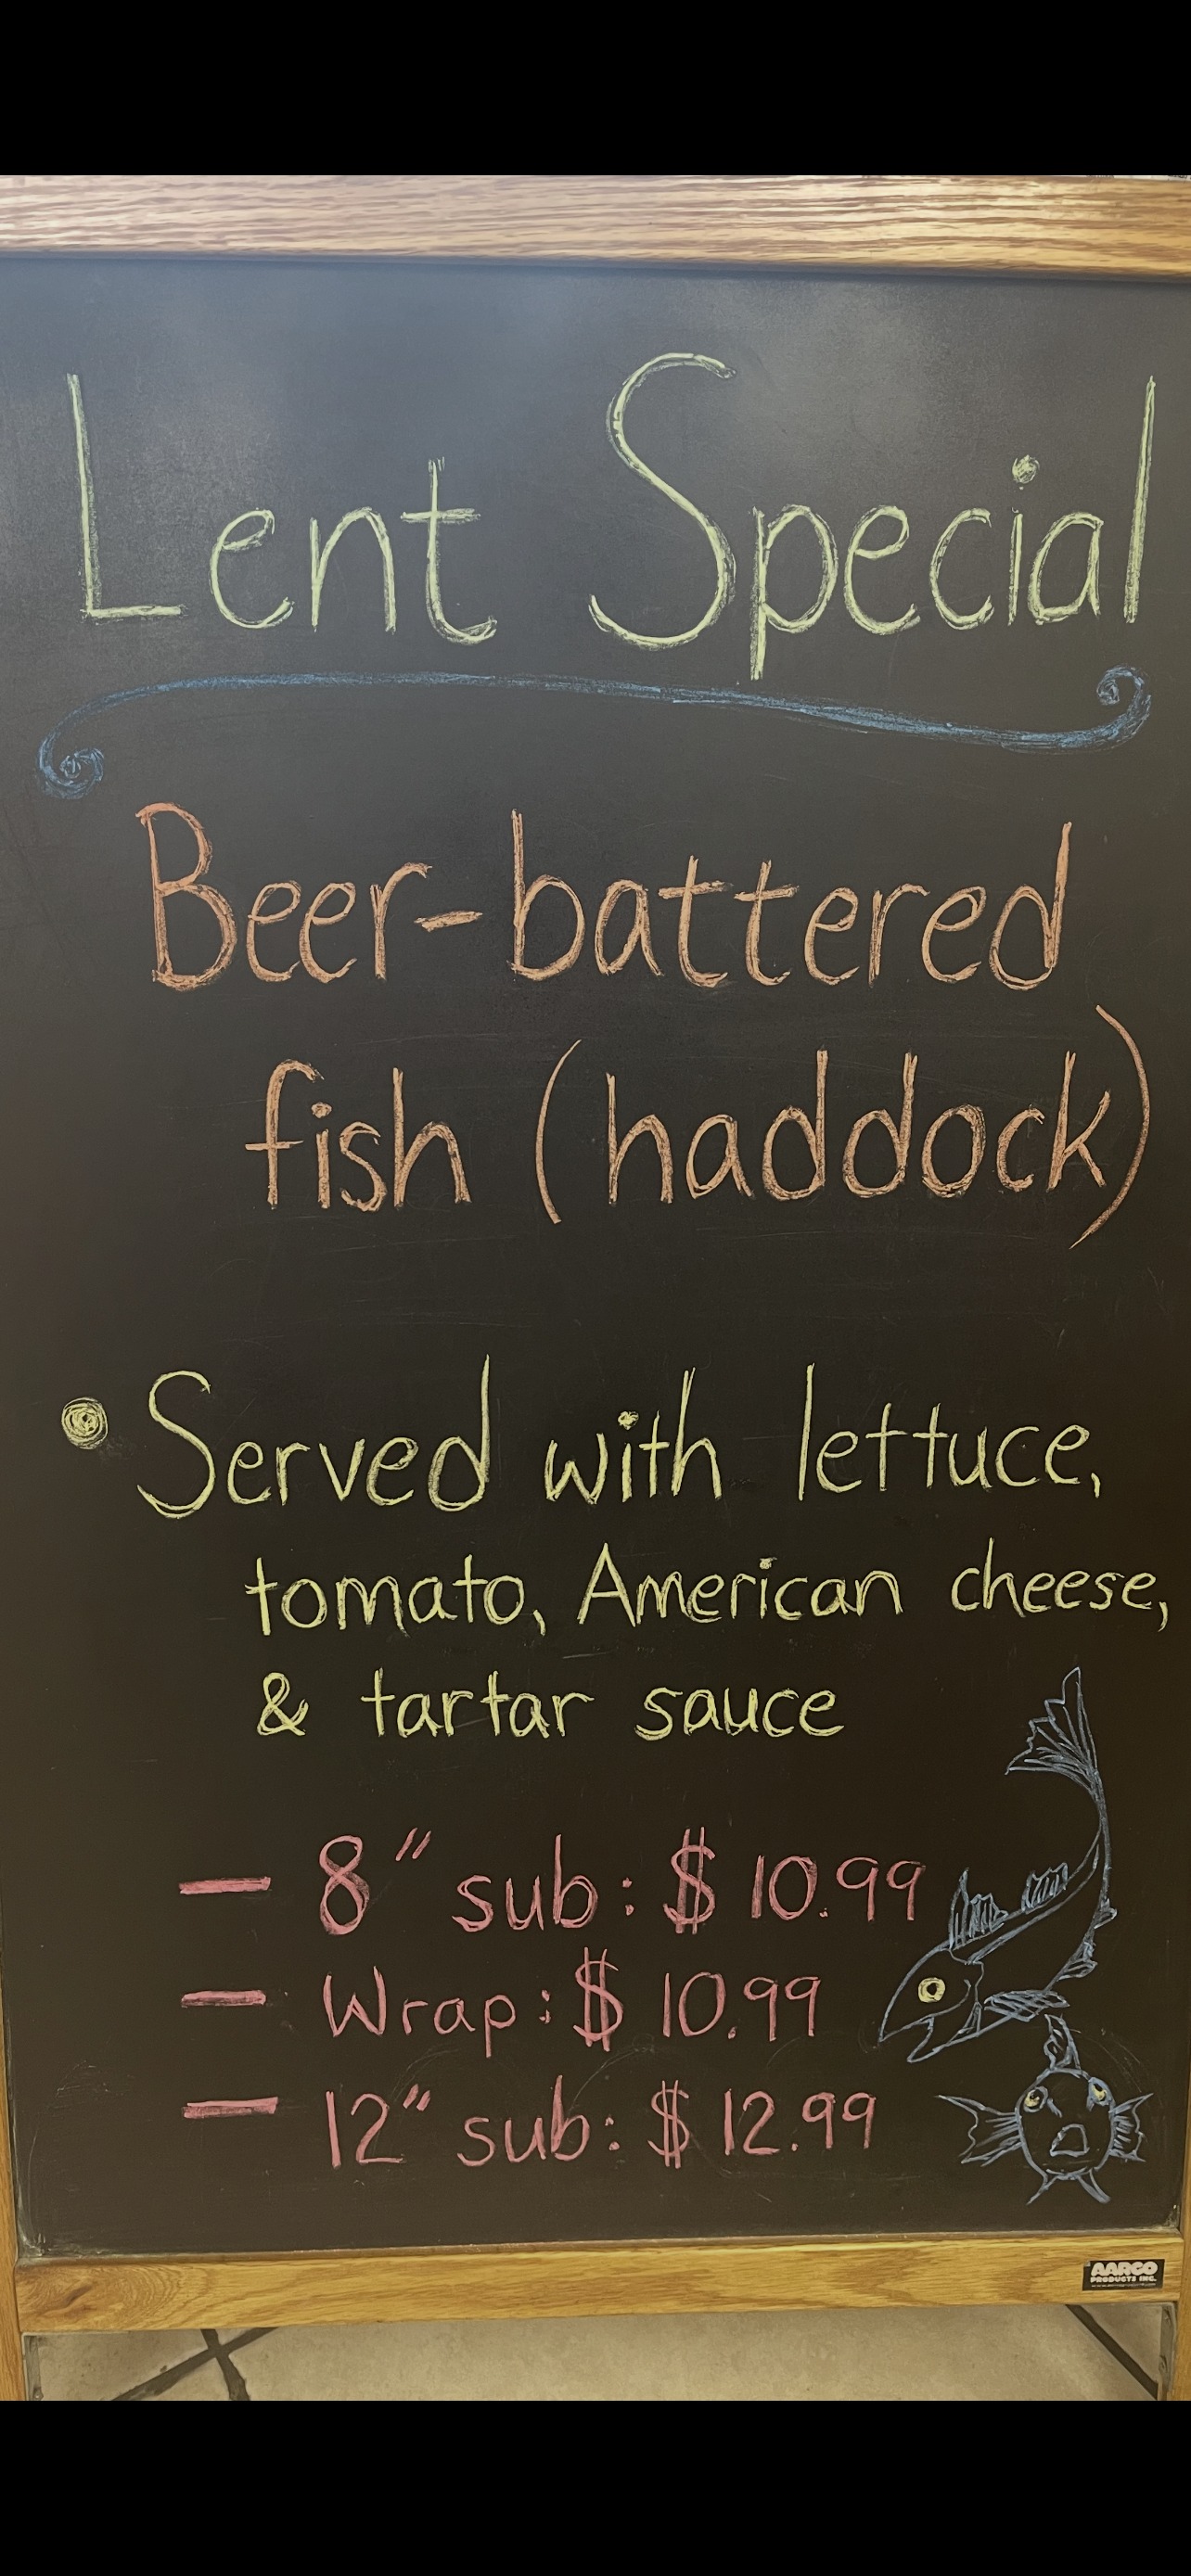 Lent Special
Beer-battered
fish (haddock)
• Served with lettuce,
tomato, American cheese,
& tartar sauce
— 8" sub: $10.99
— Wrap: $10.99
— 12" sub: $12.99
AARCO
PRODUCTS INC.